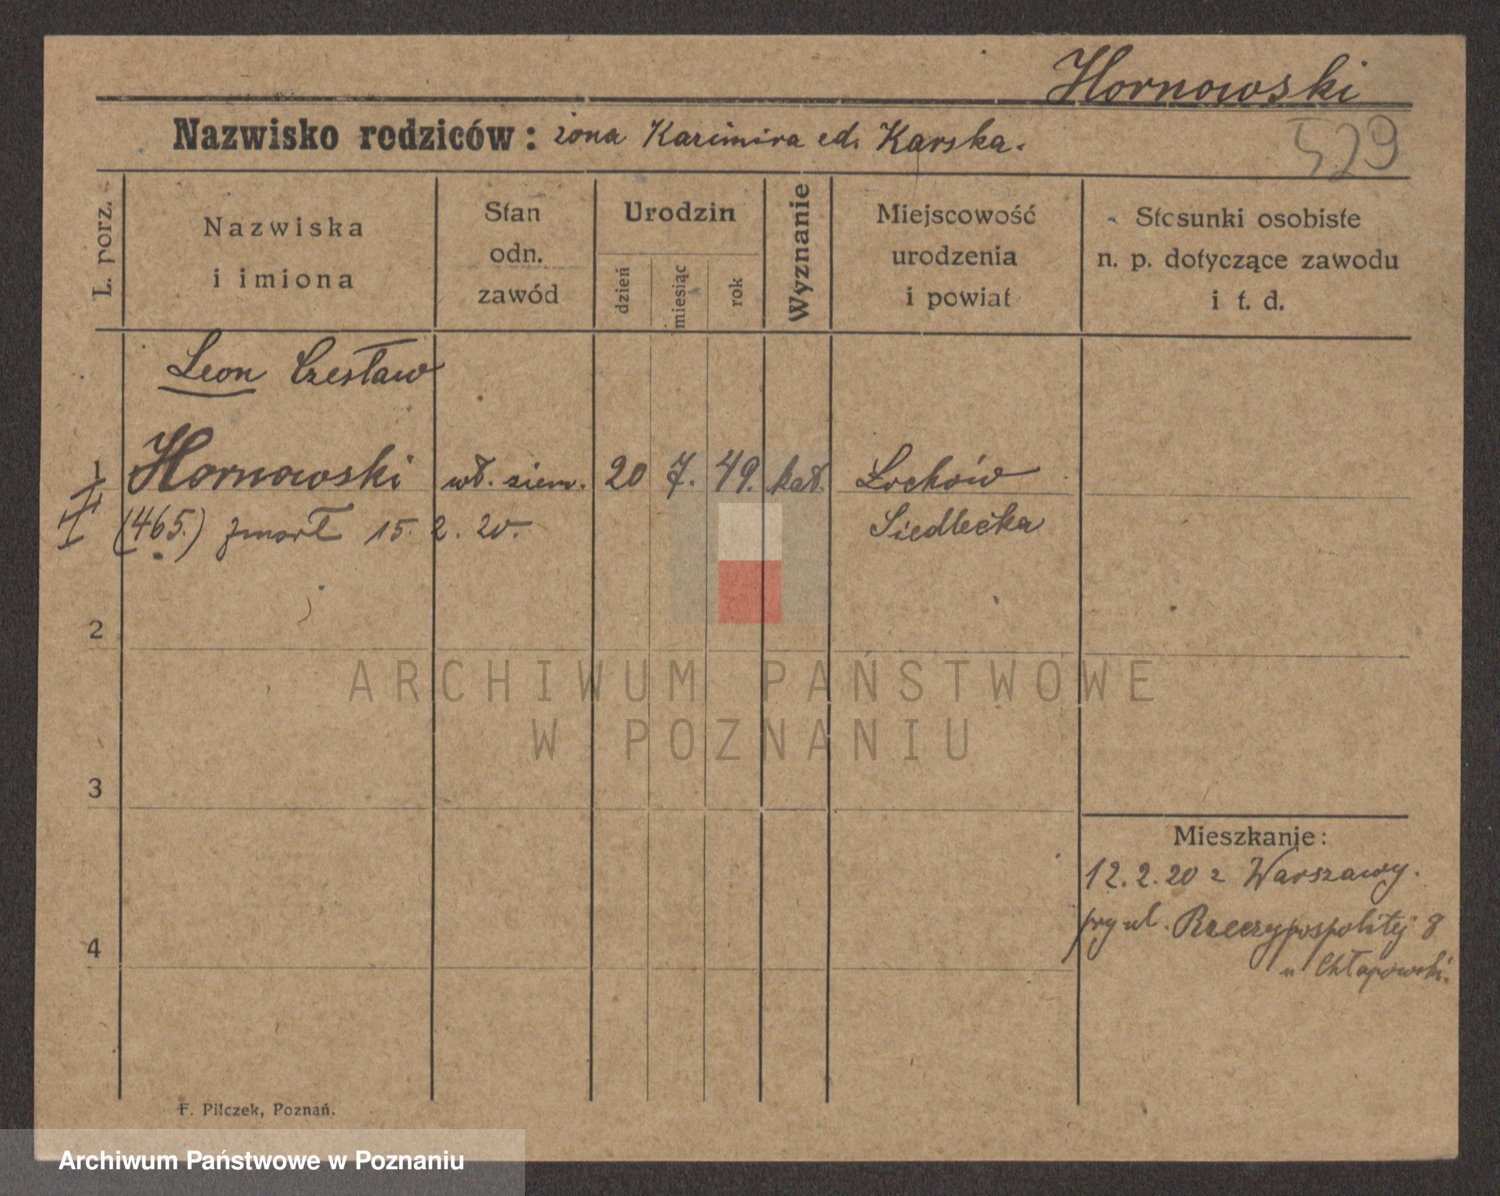 Hornowski
Nazwisko rodziców: żona Kazimira ed. Karska.
529
L. porz.
Nazwiska
i imiona
Stan
odn.
zawód
Urodzin
dzień
miesiąc
rok
Wyznanie
Miejscowość
urodzenia
i powiat
Stosunki osobiste
n. p. dotyczące zawodu
i t. d.
Leon Czesław
1 Hornowski wł. ziem. 20 7. 49. kat. Łochów
(465.) zmarł 15. 2. 20. Siedlecka
2
3
4
Mieszkanie:
12. 2. 20 z Warszawy.
przy ul. Rzeczypospolitej 8
u Chłapowski.
F. Pilczek, Poznań.
ARCHIWUM PAŃSTWOWE
W POZNANIU
Archiwum Państwowe w Poznaniu